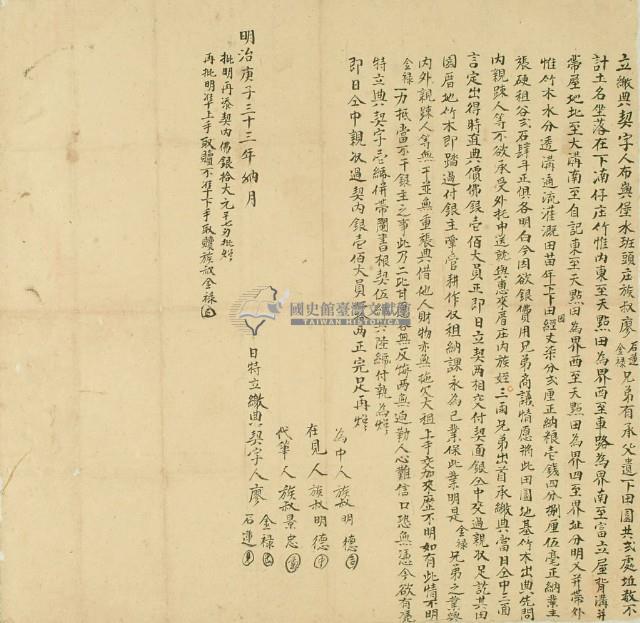 立繳典契字人布與堡水班頭庄族叔廖石蓮金祿兄弟有承父遺下田園共弍處坵數不
計土名坐落在下湳仔庄竹惟內東至天點田為界西至車路為界南至富立屋背溝并
帶屋地北至大溝南至自記東至天點田為界西至天點田為界四至界址分明又并帶外
惟竹木水分透溝通流灌溉田苗年上下田經丈柒分弍厘正納粮壹錢四分捌厘伍毫正納業主
張硬租谷弍石肆斗正俱各明白今因欲銀費用兄弟商議情愿將此田園地基竹木出典先問
內親踈人等不欲承受外托中送就與惠來厝庄內族姪三両兄弟出首承繳典當日仝中三面
言定出得時直典價佛銀壹佰大員正即日立契両相交付契面銀仝中交過親收足訖其田
園厝地竹木即踏過付銀主掌管耕作收租納課永為己業保此業明是金祿兄弟之業與
內外親踈人等無干並無重張典借他人財物亦無拖欠大租上手交加來歷不明如有此情不明
金祿一力抵當不干銀主之事此乃二比甘愿各無反悔両無迫勒人心難信口恐無憑今欲有憑
特立典契字壹紙併帶鬮書根契伍紙共陸紙付執為炤
即日仝中親收過契內銀壹佰大員両正完足再炤
為中人族叔明德
在見人族叔明德
代筆人族叔景忠
日特立繳典契字人廖金祿石蓮
明治庚子三十三年納月
批明再添契內佛銀拾大元平七刃批炤
再批明準上手取贖不準下手取贖族叔金祿
國史館臺灣文獻館
TAIWAN HISTORICA